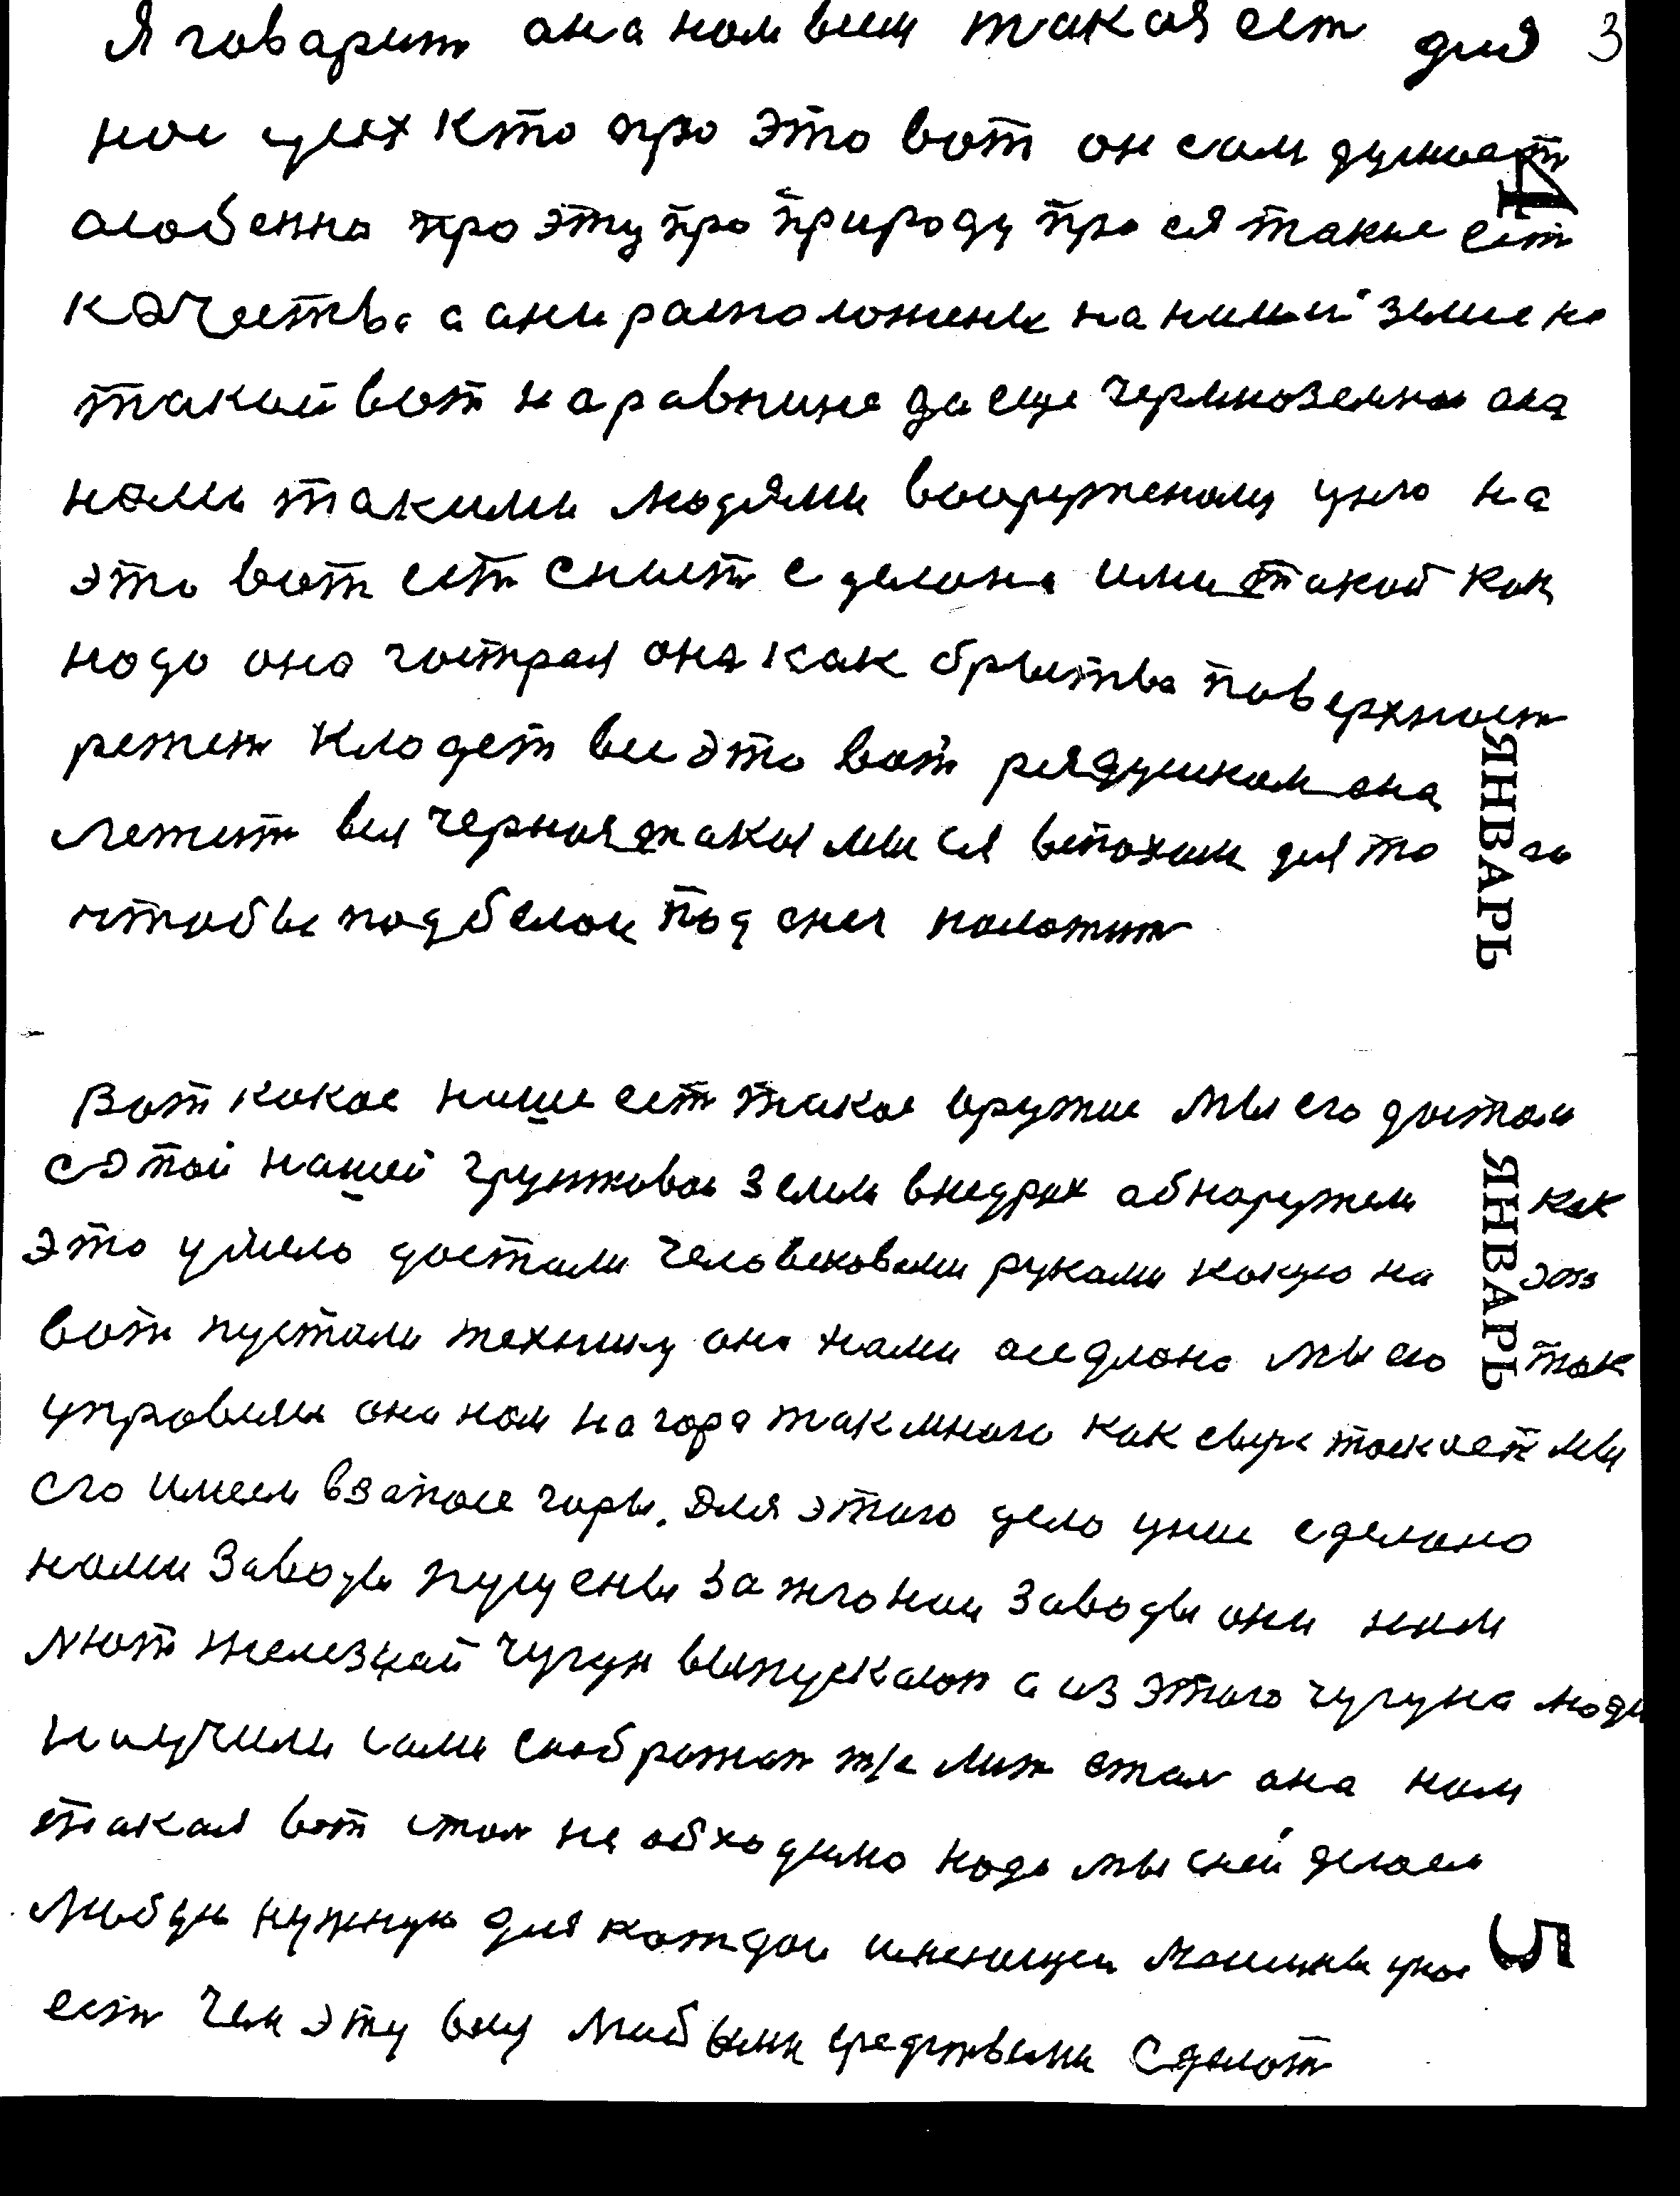 Я говарит она нам всем такая ест для 3
нас цех кто про это вот он сам думает
4
особенно про эту про природу про ея такие ест
качества а они расположены на нашей земле на
такой вот на равнине да еще чермноземная она
нами такими людями вооруженому уно на
это вот ест снист сделана ими такой как
надо она гострая она как бритва поверхност
режет кладет все это вот рядушком она
лежит вся черная такая мы ея вспохали для то го
чтобы под белой под снег положит
ЯНВАРЬ
Вот какое наше ест такое оружие мы его достали
с этой нашей грунтовой земли внедрах обнаружели как
это умело достали человековыми руками какую на это
вот пустили технику она нами оседлана мы ею так
управляли она нам на гора так много как сыре таскает мы
его имеем в запасе горы. Для этого дело уже сделано
нами заводы пущены зажгоныи заводы они нам
льют железный чугун выпускают а из этого чугуна люди
научили сами сображат т/е лит стал она нам
такая вот стал необходимо надо мы с ней делаем
любую нужную для каждой имеющей машины уже
ест чем эту всу любыми средствами сделат
ЯНВАРЬ
5